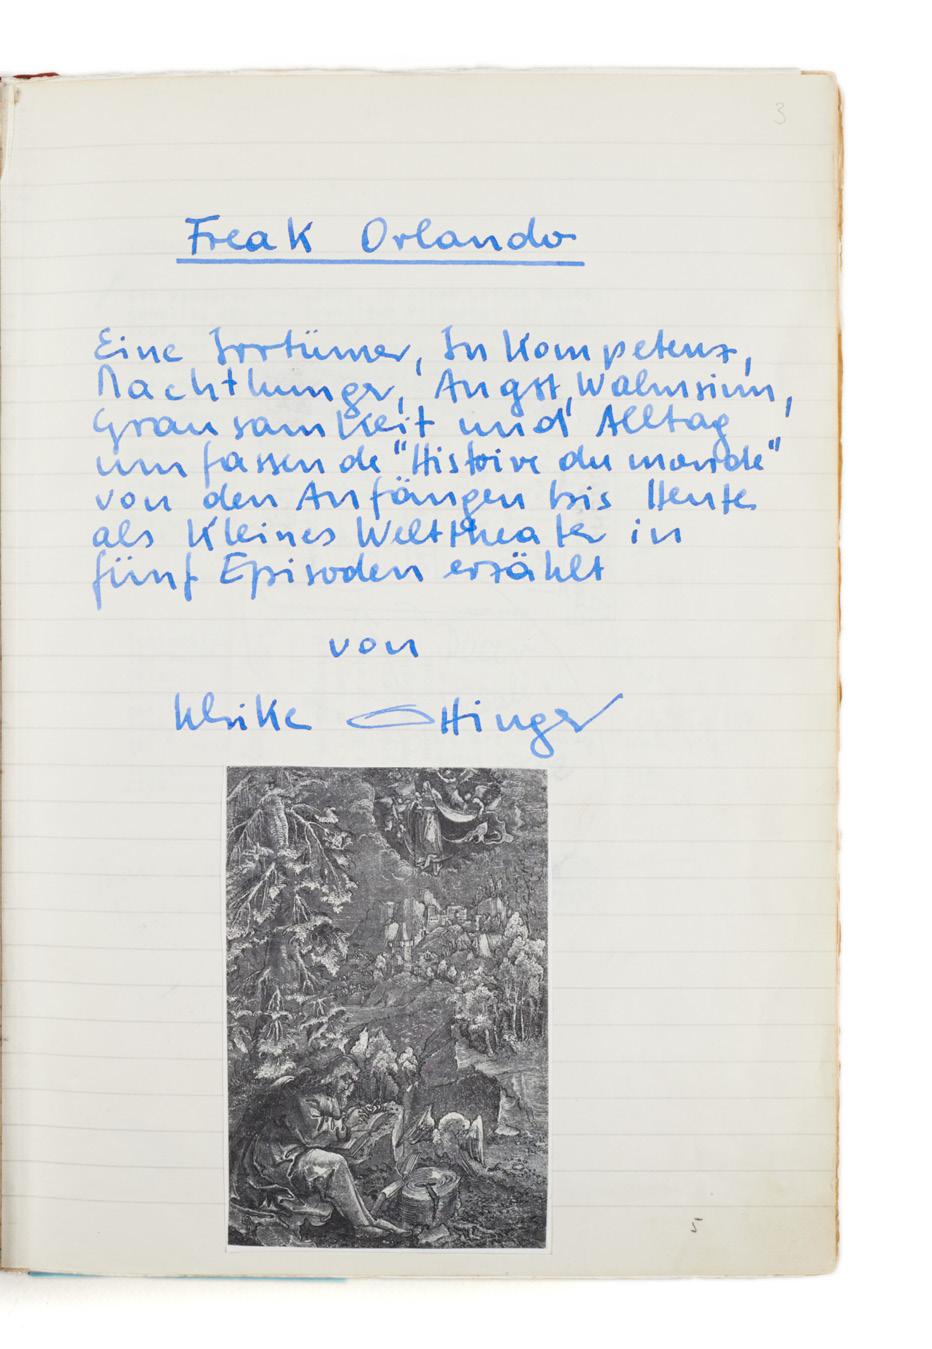 3
Freak Orlando
Eine Irrtümer, Inkompetenz,
Machthunger, Angst, Wahnsinn,
Grausamkeit und Alltag
umfassende "Histoire du monde"
von den Anfängen bis Heute
als Kleines Welttheater in
fünf Episoden erzählt
von
Ulrike Ottinger
5